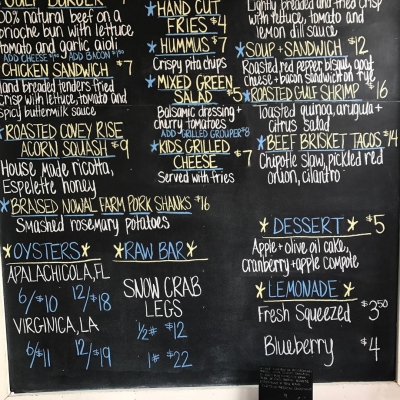 GULF BURGER $
100% natural beef on a
brioche bun with lettuce
tomato and garlic aioli
ADD CHEESE ADD BACON
CHICKEN SANDWICH $7
Hand breaded tenders fried
crisp with lettuce, tomato and
spicy buttermilk sauce
ROASTED COVEY RISE
ACORN SQUASH $9
House made ricotta,
Espelette honey
BRAISED NOWAL FARM PORK SHANKS $16
Smashed rosemary potatoes
HAND CUT
FRIES $4
HUMMUS $7
Crispy pita chips
MIXED GREEN
SALAD $5
Balsamic dressing +
cherry tomatoes
ADD GRILLED GROUPER $8
KIDS GRILLED
CHEESE $7
Served with fries
Lightly breaded and fried crisp
with lettuce, tomato and
lemon dill sauce
SOUP + SANDWICH $12
Roasted red pepper bisque, goat
cheese + bacon sandwich on rye
ROASTED GULF SHRIMP $16
Toasted quinoa, arugula +
citrus salad
BEEF BRISKET TACOS $14
Chipotle slaw, pickled red
onion, cilantro
OYSTERS
APALACHICOLA, FL
6/$10 12/$18
VIRGINICA, LA
6/$11 12/$19
RAW BAR
SNOW CRAB
LEGS
1/2# $12
1# $22
DESSERT $5
Apple + olive oil cake,
cranberry + apple compote
LEMONADE
Fresh Squeezed $3.50
Blueberry $4